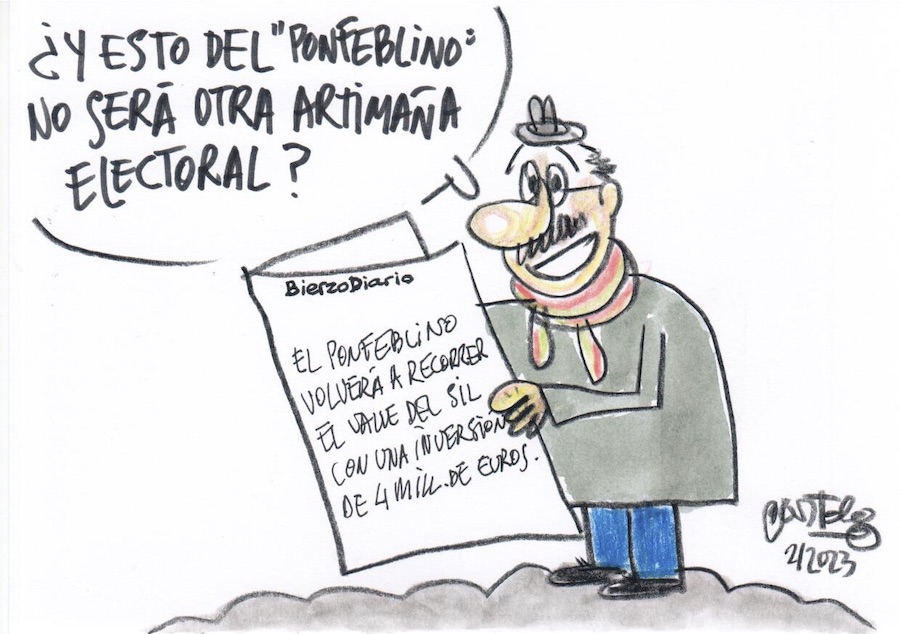 ¿Y ESTO DEL "PONFEBLINO"
NO SERÁ OTRA ARTIMAÑA
ELECTORAL?
BierzoDiario
EL PONFEBLINO
VOLVERÁ A RECORRER
EL VALLE DEL SIL
CON UNA INVERSIÓN
DE 4 MILL. DE EUROS.
2/2023